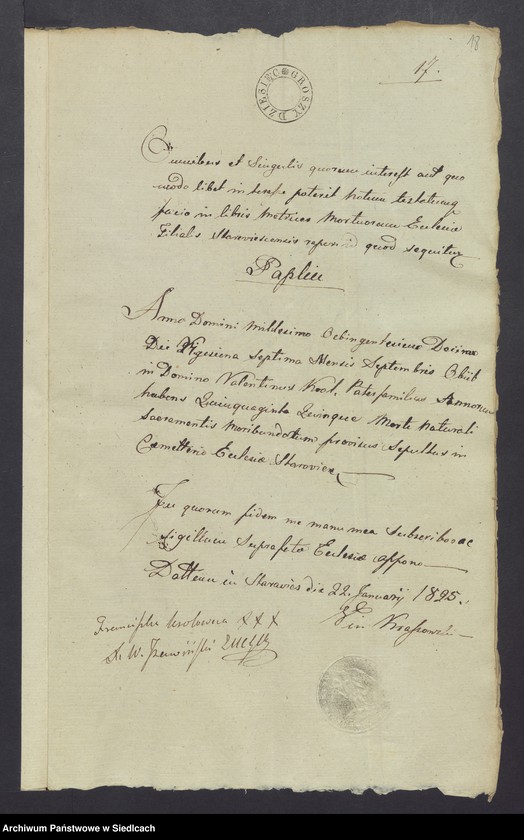 18
17.
DZIESIĘĆ GROSZY
Omnibus et Singulis quorum interest aut quo
modo libet in poterit notum testatumq
facio in libris Metrices Mortuorum Eclesiæ
Filialis Staroviesiensis reperiri quod sequitur
Anno Domini Millesimo Octingentesimo
Die Vigesima Septima Mensis Septembris Obiit
in Domino Valentinus Krol, Paterfamilias Annorum
habens Quinquaginta Quinque Morte Naturali
Sacramentis Moribundorum provisus Sepultus in
Cæmetterio Eclesiæ
In quorum fidem me manu mea Subscribo ac
Sigillum Suprafatæ Eclesiæ appono
Dattum in Starawies die 22. Januarij 1825.
Krassowski
Franciszka Krolowna X X X
X. W.
Archiwum Państwowe w Siedlcach